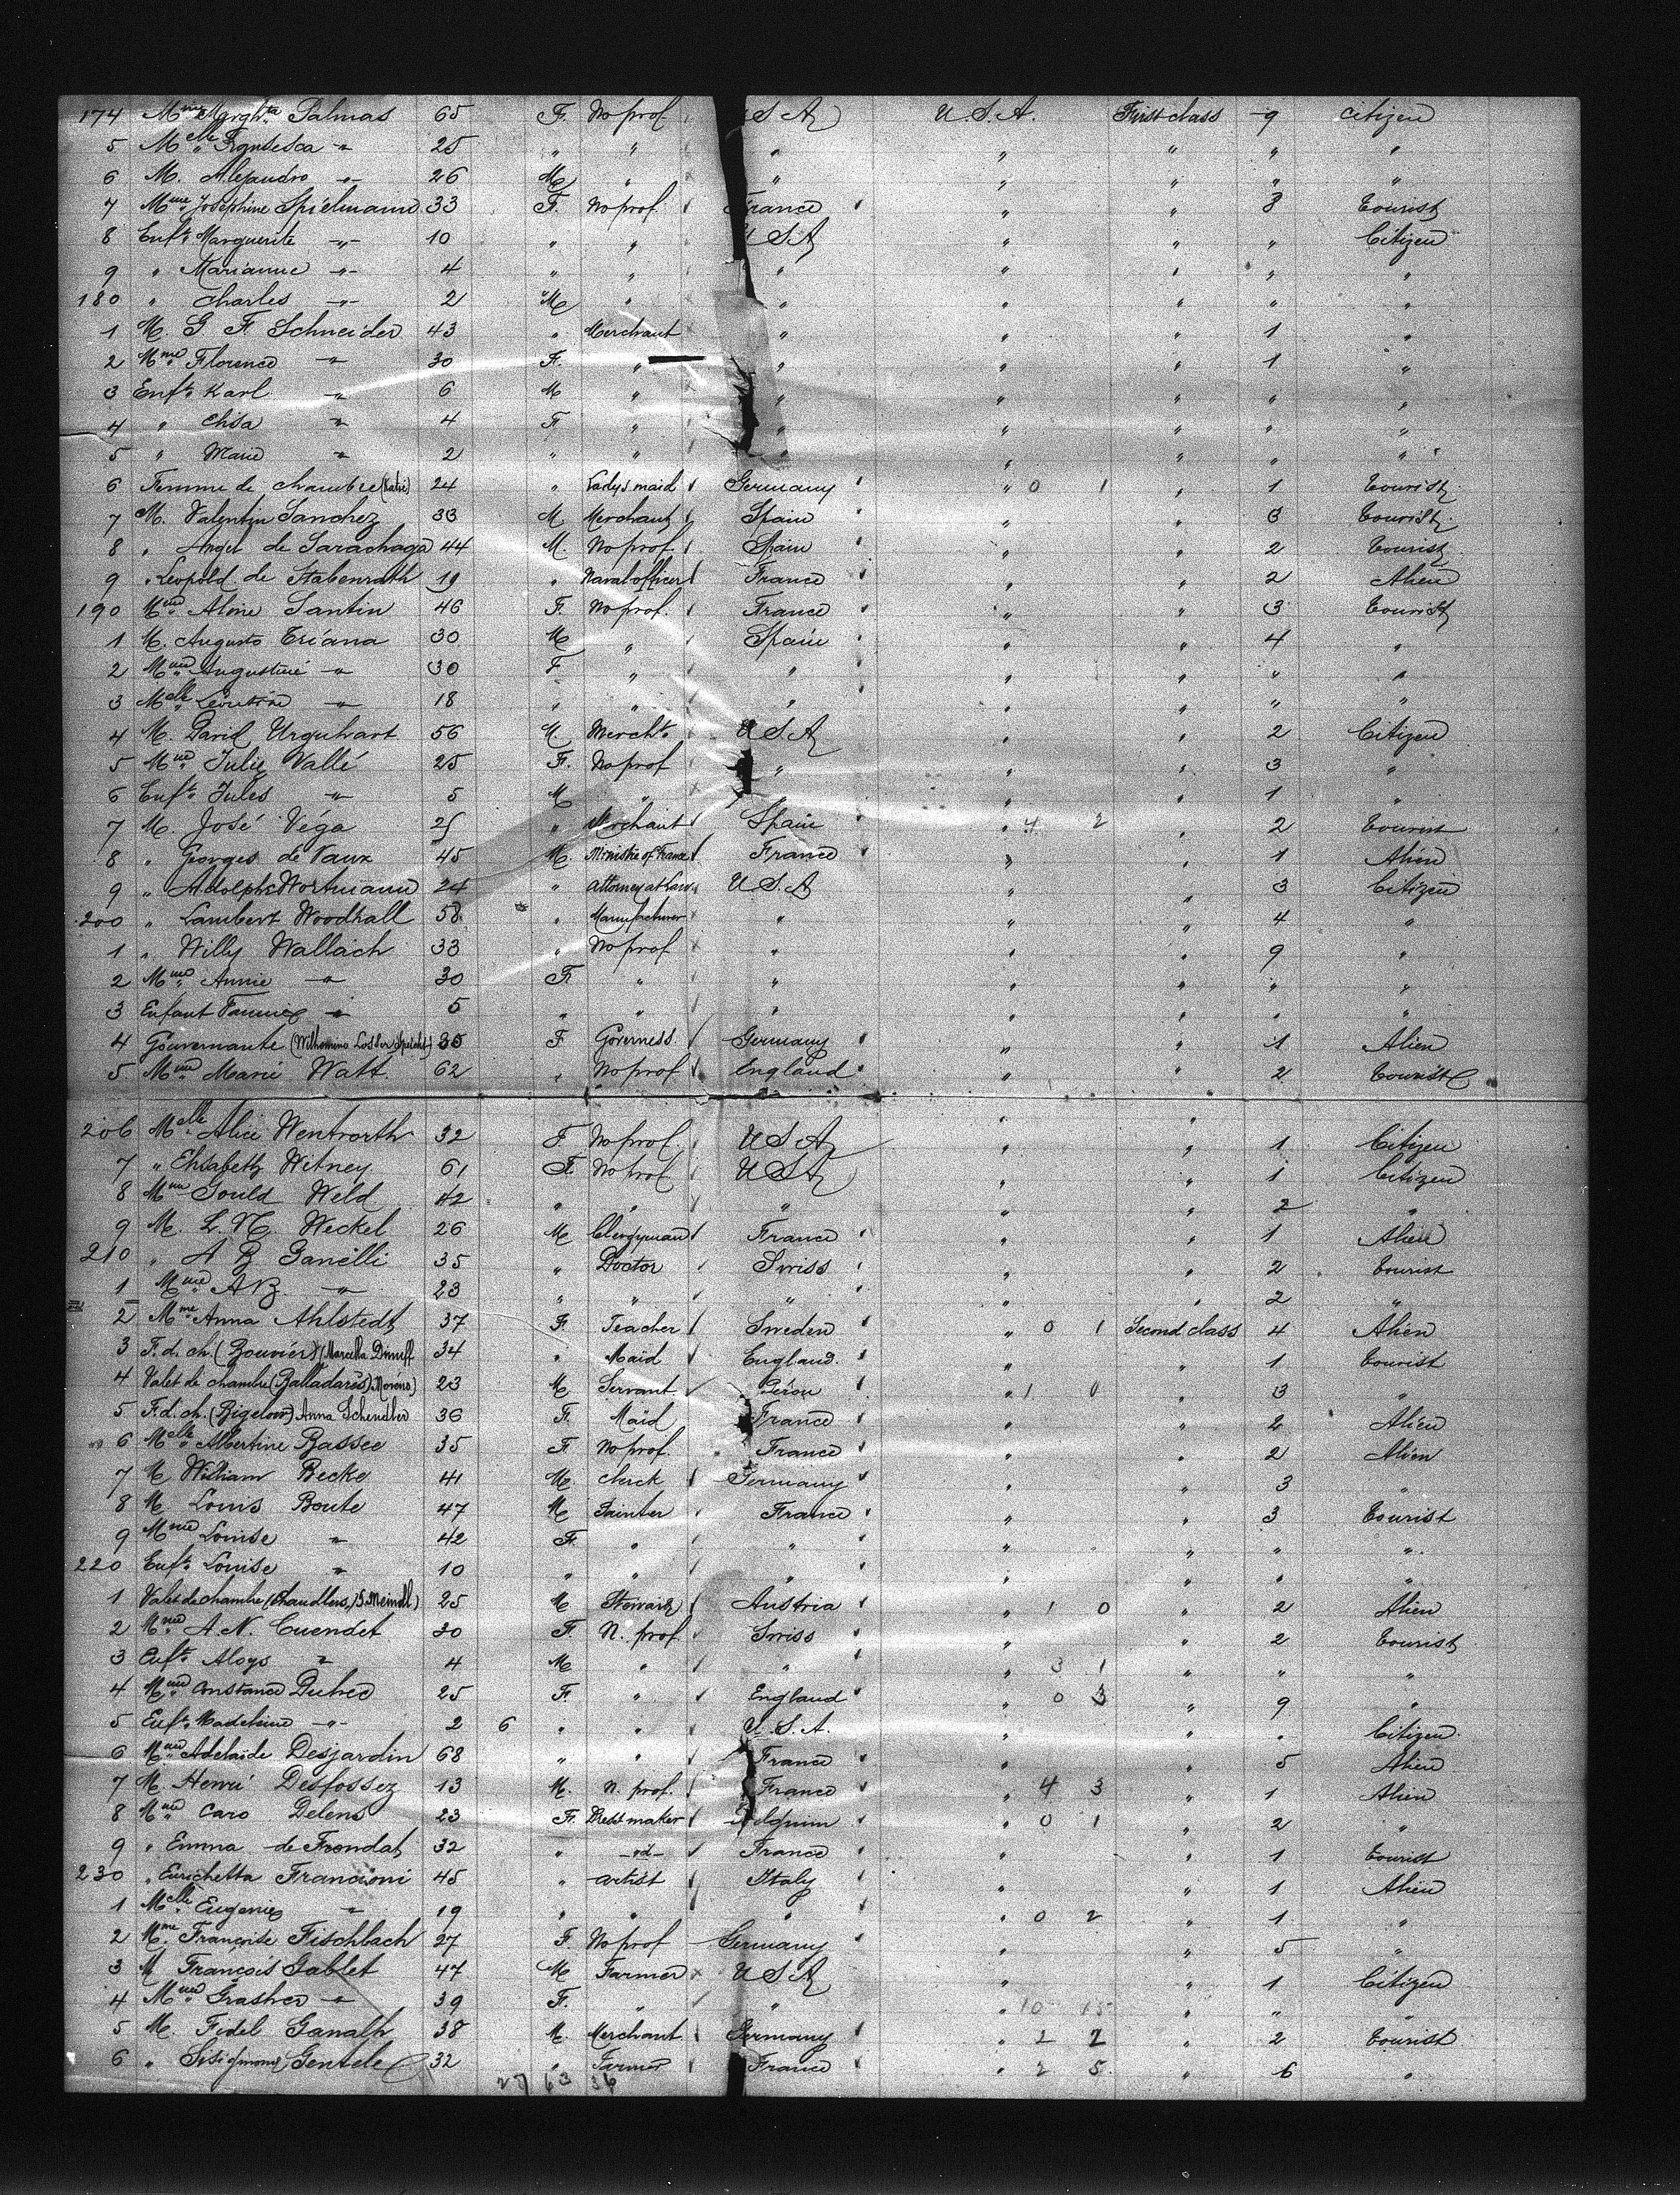 174 Mme Palmas 65 F. No prof S A U.S.A. First class 9 citizen
5 Melle " 25 " " " " " " "
6 M. Alejandro " 26 M " " " " " "
7 Mme Joséphine Spielmann 33 F. No prof. France " " 3 tourist
8 Enft. Marguerite " 10 " " U S A " " " Citizen
9 " Marianne " 4 " " " " " " "
180 " Charles " 2 M " " " " " "
1 M. G F Schneider 43 " Merchant " " " 1 "
2 Mme Florence " 30 F. " " " " 1 "
3 Enft. Karl " 6 M " " " " " "
4 " Elisa " 4 F " " " " " "
5 " Marie " 2 " " " " " " "
6 Femme de chambre (Katie) 24 " Lady's maid Germany " 0 1 " 1 tourist
7 M. Valentin Sanchez 33 M Merchant Spain " " 3 tourist
8 " Angel de Sarachaga 44 M. No prof Spain " " 2 tourist
9 " Leopold de Stabenrath 19 " Naval officer France " " 2 Alien
190 Mme Aline Santin 46 F. No prof. France " " 3 tourist
1 M. Augusto Triana 30 M " Spain " " 4 "
2 Mme Augustine " 30 F " " " " " "
3 Melle Léontine " 18 " " " " " " "
4 M. David Urquhart 56 M. Mercht. U S A " " 2 Citizen
5 Mme Julie Vallé 25 F. No prof " " " 3 "
6 Enft. Jules " 5 M " " " " 1 "
7 M. José Véga 25 " Merchant Spain " 4 2 " 2 tourist
8 " Georges de Vaux 45 M. Ministre of France France " " 1 Alien
9 " Adolphe Wortmann 24 " Attorney at Law U S A " " 3 Citizen
200 " Lambert Woodhall 58 " Manufacturer " " " 4 "
1 " Willy Wallach 33 " No prof " " " 9 "
2 Mme Annie " 30 F. " " " " " "
3 Enfant Fannie " 5 " " " " " " "
4 Gouvernante (Wilhemina) 35 F Governess Germany " " 1 Alien
5 Mme Marie Watt. 62 " No prof England " " 2 tourist
206 Melle Alice Wentworth 32 F. No prof. U S A " " 1 Citizen
7 " Elisabeth Witney 61 F. No prof U S A " " 1 Citizen
8 Mme Gould Weld 42 " " " " " 2 "
9 M. L. N. Weckel 26 M Clergyman France " " 1 Alien
210 " A B Ganelli 35 " Doctor Swiss " " 2 tourist
1 Mme A B. " 23 " " " " " 2 "
2 Mme Anna Ahlstedt 37 F Teacher Sweden " 0 1 Second class 4 Alien
3 F. d. ch. (Bouvier) (Marcella 34 " Maid England. " " 1 tourist
4 Valet de chambre (Balladarès) Moréno) 23 M Servant Pérou " 1 0 " 3 "
5 F. d. ch. (Bigelow) Anna Schendler 36 F. Maid France " " 2 Alien
6 Melle Albertine Bassee 35 F No prof. France " " 2 Alien
7 M William Becke 41 M. clerck Germany " " 3 "
8 M Louis Boute 47 M Painter France " " 3 tourist
9 Mme Louise " 42 F. " " " " " "
220 Enft. Louise " 10 " " " " " " "
1 Valet de chambre (Chandlers) S. Meindl.) 25 M Steward Austria " 1 0 " 2 Alien
2 Mme A. N. Cuendet 30 F. N. prof Swiss " " 2 tourist
3 Enft. Aloys " 4 M " " " 3 1 " " "
4 Mme Constance 25 F. " England " 0 3 " 9 "
5 Enft. Madeleine " 2 6 " " U.S.A. " " " Citizen
6 Mme Adelaide Desjardin 68 " " France " " 5 Alien
7 M. Henri Desfossez 13 M. N. prof. France " 4 3 " 1 Alien
8 Mme Caro Delens 23 F. Dressmaker Belgium " 0 1 " 2 "
9 " Emma de Frondat 32 " id France " " 1 tourist
230 " Enrichetta Francioni 45 " artist Italy " " 1 Alien
1 Melle Eugenie " 19 " " " " 0 2 " 1 "
2 Mme Françoise Fischbach 27 F. No prof Germany " " 5 "
3 M François Gablet 47 M Farmer U S A " " 1 Citizen
4 Mme " 39 F. " " " 10 15 " " "
5 M. Fidel Ganath 38 M. Merchant Germany " 2 2 " 2 tourist
6 " Gentele 32 " Farmer France " 2 5 " 6 "
27 63 36